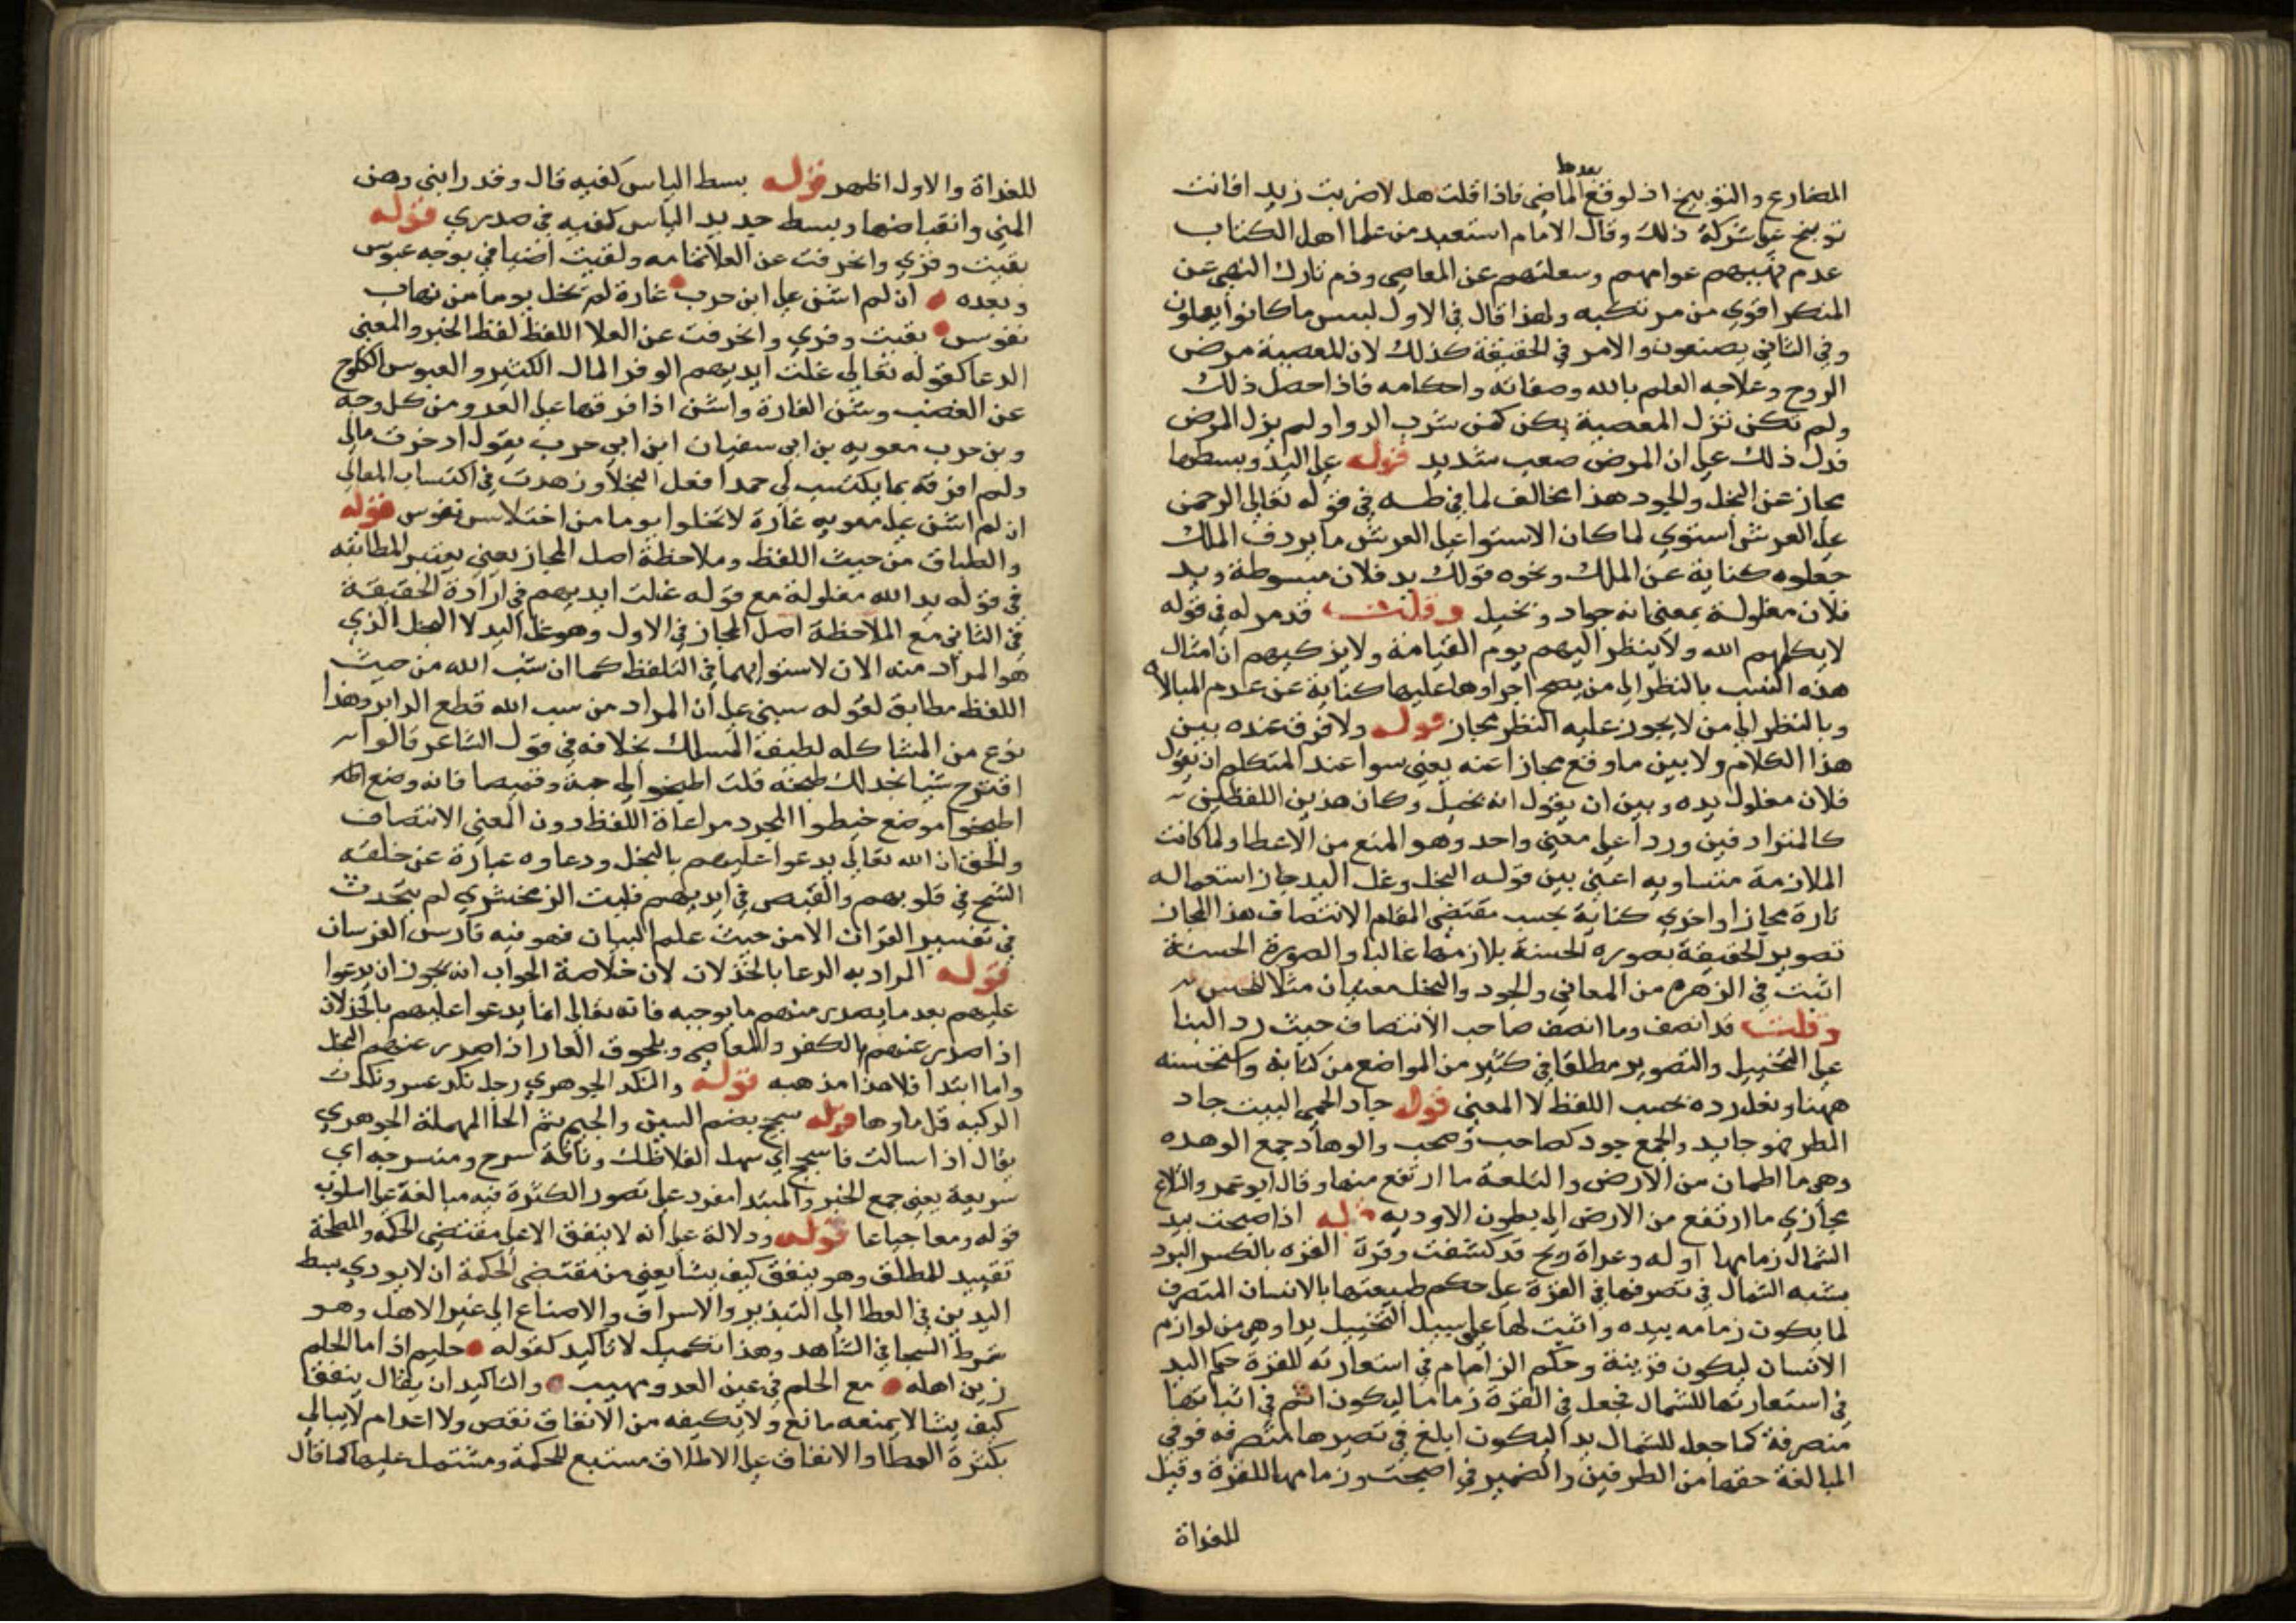 بعدها
المضارع والتوبيخ اذ لو وقع الماضي فاذا قلت هل لا ضربت زيدا فانت
توبيخ على تركه ذلك وقال الامام استعبد من علما اهل الكتاب
عدم نهيهم عوامهم وسفلتهم عن المعاصي وذم تارك النهي عن
المنكر اقوي من مرتكبه ولهذا قال في الاول لبيس ما كانوا يعملون
وفي الثاني يصنعون والامر في الحقيقة كذلك لان للمعصية مرض
الروح وعلاجه العلم بالله وصفاته واحكامه فاذا حصل ذلك
ولم تكن تزل المعصية يكن كمن شرب الدوا ولم يزل المرض
فدل ذلك على ان المرض صعب شديد قوله غل اليد وبسطها
مجاز عن البخل والجود هذا مخالف لما في طه في قوله تعالي الرحمن
على العرش استوي لما كان الاستوا على العرش ما يردف الملك
جعلوه كناية عن الملك ونحوه قولك يد فلان مبسوطة ويد
فلان مغلولة بمعني انه جواد وبخيل وقلت قد مر له في قوله
لا يكلمهم الله ولا ينظر اليهم يوم القيامة ولا يزكيهم ان امثال
هذه النسب بالنظر الى من يصح اجراوها عليها كناية عن عدم المبالاة
وبالنظر الى من لا يجوز عليه النظر مجاز قوله ولا فرق عنده بين
هذا الكلام ولا بين ما وقع مجازا عنه يعني سوا عند المتكلم ان يقول
فلان مغلول يده وبين ان يقول انه بخيل وكان هذين اللفظين
كالمترادفين وردا على معني واحد وهو المنع من الاعطا ولما كانت
الملازمة متساويه اعني بين قوله البخل وغل اليد جاز استعماله
تارة مجازا واخري كناية بحسب مقتضي المقام الانتصاف هذا المجاز
تصوير الحقيقة بصوره الحسنة بلازمها غالبا والصورة الحسنة
اثبت في الزهرم من المعاني والجود والبخل معنيان مثلا للحس
وقلت قد انصف وما انصف صاحب الانتصاف حيث رد البنا
على التخييل والتصوير مطلقا في كثير من المواضع من كتابه واستحسنه
ههنا ولعل رده بحسب اللفظ لا المعني قوله جاد الحمي البيت جاد
المطر فهو جايد والجمع جود كصاحب وصحب والوهاد جمع الوهده
وهي ما اطمان من الارض والتلعة ما ارتفع منها وقال ابو عمرو التلاع
مجازي ما ارتفع من الارض الى بطون الاوديه قوله اذ اصبحت بيد
الشمال زمامها اوله وغداة ريح قد كشفت وقرة القره بالكسر البرد
يشبه الشمال في تصرفها في القرة على حكم طبيعتها بالانسان المتصرف
لما يكون زمامه بيده واثبت لها على سبيل التخييل يدا وهي من لوازم
الانسان ليكون قرينة وحكم الزمام في استعارته للقرة حكم اليد
في استعارتها للشمال فجعل في القرة زماما ليكون اتم في اثباتها
متصرفة كما جعل للشمال يدا ليكون ابلغ في تصيرها متصرفه فوفي
المبالغة حقها من الطرفين والضمير في اصبحت وزمامها للقرة وقيل
للغداة
للغداة والاول اظهر قوله بسط الياس كفيه قال وقد رابني وهن
المني وانقباضها وبسط جديد الياس كفيه في صدري قوله
بقيت وفري وانحرفت عن العلا تمامه ولقيت اضيافي بوجه عبوس
وبعده ان لم اشن على ابن حرب غارة لم تخل يوما من نهاب
نفوس بقيت وفري وانحرفت عن العلا اللفظ لفظ الخبر والمعني
الدعا كقوله تعالي غلت ايديهم الوفر المال الكثير والعبوس الكلوح
عن الغضب وشن الغارة واشن اذا فرقها على العدو من كل وجه
وبن حرب معويه بن ابي سفيان ابن ابي حرب يقول ادخرت مالي
ولم افرقه بما يكتسب لي حمدا فعل البخلا وزهدت في اكتساب المعالي
ان لم اشن على معويه غارة لا تخلوا يوما من اختلاس نفوس قوله
والطباق من حيث اللفظ وملاحظة اصل المجاز يعني يعتبر المطابقه
في قوله يد الله مغلولة مع قوله غلت ايديهم في ارادة الحقيقة
في الثاني مع الملاحظة اصل المجاز في الاول وهو غل اليد لا البخل الذي
هو المراد منه الان لاستوايهما في التلفظ كما ان سب الله من حيث
اللفظ مطابق لقوله سبني على ان المراد من سب الله قطع الدابر وهذا
نوع من المشاكله لطيف المسلك بخلافه في قول الشاعر قالوا
اقترح شيا نجد لك طبخه قلت اطبخوا لي جبة وقميصا فانه وضع
اطبخوا موضع خيطوا المجرد مراعاة اللفظ دون المعني الانتصاف
والحق ان الله تعالي يدعوا عليهم بالبخل ودعاوه عبارة عن خلقه
الشح في قلوبهم والقبص في ايديهم فليت الزمخشري لم يتحدث
في تفسير القران الا من حيث علم البيان فهو فيه فارس الفرسان
قوله المراد به الدعا بالخذلان لان خلاصة الجواب انه يجوز ان يدعوا
عليهم بعد ما يصدر منهم ما يوجبه فانه تعالي انما يدعوا عليهم بالخذلان
اذا صدر عنهم الكفر والمعاصي وبلحوق العار اذا صدر عنهم البخل
واما ابتدا فلا هذا مذهبه قوله والنكد الجوهري رجل نكد عسر ونكدت
الركيه قل ماوها قوله سجح بضم السين والجيم ثم الحا المهملة الجوهري
يقال اذا سالت فاسجح اي سهل الفلاظك وناقة سرح ومنسرحه اي
سريعة يعني جمع الخبر والمبتدا مفرد على تصور الكثرة فيه مبالغة على اسلوب
قوله ومعا جياعا قوله ودلالة على انه لا ينفق الا على مقتضي الحكمه والمصلحة
تقييد للمطلق وهو ينفق كيف يشا يعني من مقتضي الحكمة ان لا يودي بسط
اليدين في العطا الى التبذير والاسراف والاصناع الى غير الاهل وهو
شرط السخا في الشاهد وهذا تكميل لا تاكيد كقوله حليم اذا ما الحلم
زين اهله مع الحلم في عين العدو مهيب والتاكيد ان يقال ينفق
كيف يشا لا يمنعه مانع ولا يكيفه من الانفاق نقص ولا اعدام لا يبالي
بكثرة العطا والانفاق على الاطلاق مستتبع للحكمة ومشتمل عليها كما قال